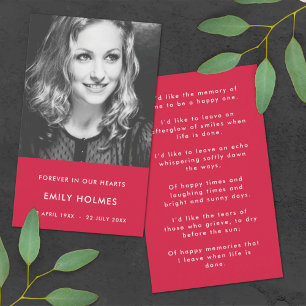 FOREVER IN OUR HEARTS
EMILY HOLMES
APRIL 19XX - 22 JULY 20XX
I'd like the memory of
me to be a happy one.
I'd like to leave an
afterglow of smiles when
life is done.
I'd like to leave an echo
whispering softly down
the ways,
Of happy times and
laughing times and
bright and sunny days.
I'd like the tears of
those who grieve, to dry
before the sun;
Of happy memories that
I leave when life is
done.